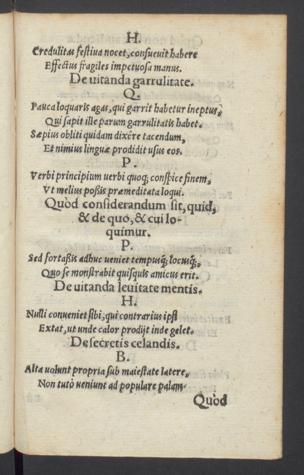 H.
Credulitas festiua nocet, consueuit habere
Effectus fragiles impetuosa manus.
De uitanda garrulitate.
Q.
Pauca loquaris agas, qui garrit habetur ineptus,
Qui sapit ille parum garrulitatis habet.
Sæpius obliti quidam dixêre tacendum,
Et nimius linguæ prodidit usus eos.
P.
Verbi principium uerbi quoq; conspice finem,
Vt melius poßis præmeditata loqui.
Quòd considerandum sit, quid,
& de quo, & cui lo-
quimur.
P.
Sed fortaßis adhuc ueniet tempusq; locusq;,
Quo se monstrabit quisquis amicus erit.
De uitanda leuitate mentis.
H.
Nulli conueniet sibi, qui contrarius ipsi
Extat, ut unde calor prodijt inde gelet.
De secretis celandis.
B.
Alta uolunt propria sub maiestate latere,
Non tutò ueniunt ad populare palam.
Quòd